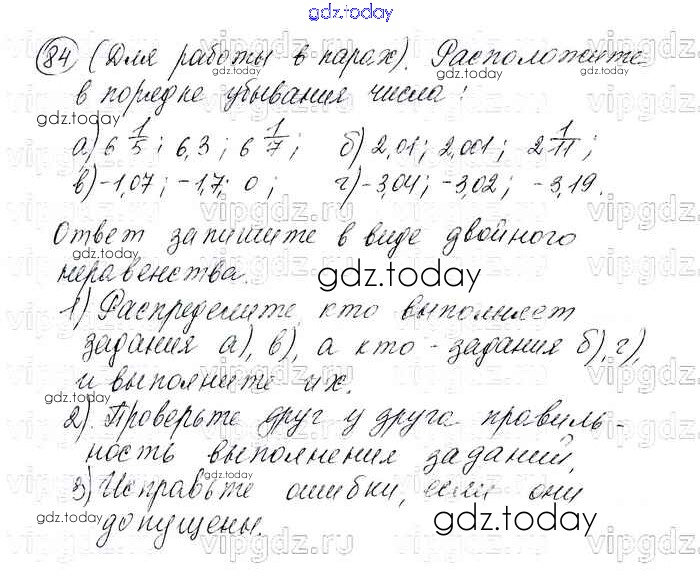 gdz.today
84 (Для работы в парах). Расположите
в порядке убывания числа:
а) 6 1/5; 6,3; 6 1/7; б) 2,01; 2,001; 2 1/11;
в) -1,07; -1,7; 0; г) -3,04; -3,02; -3,19.
Ответ запишите в виде двойного
неравенства.
1) Распределите, кто выполняет
задания а), в), а кто - задания б), г),
и выполните их.
2). Проверьте друг у друга правиль-
ность выполнения заданий.
3) Исправьте ошибки, если они
допущены.
gdz.today
gdz.today
gdz.today
gdz.today
gdz.today
gdz.today
gdz.today
gdz.today
vipgdz.ru